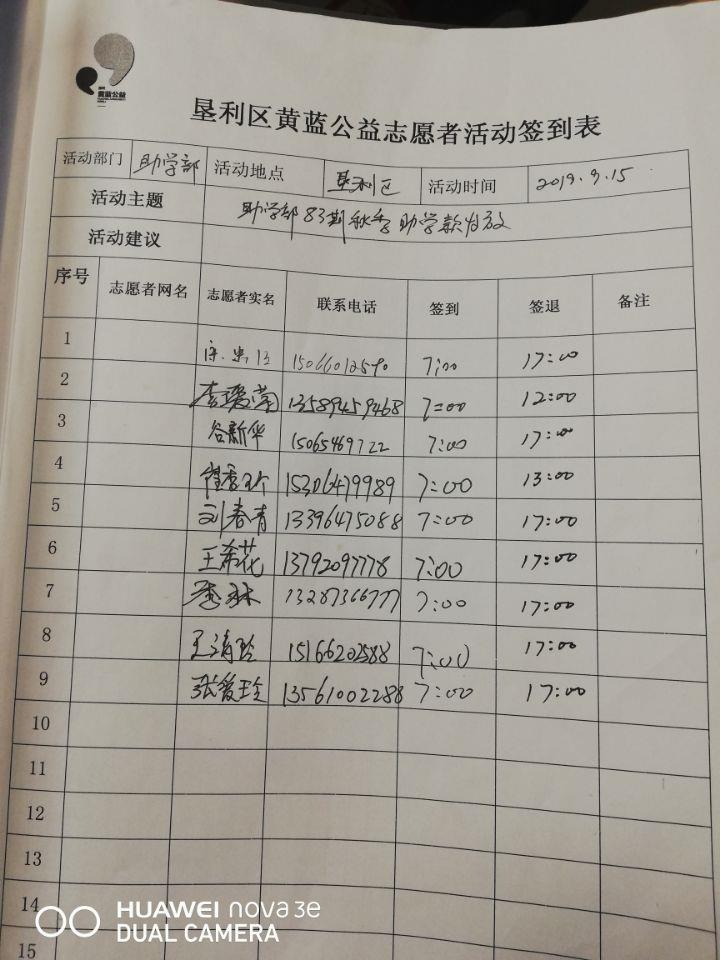 黄蓝公益
垦利区黄蓝公益志愿者活动签到表
活动部门 助学部 活动地点 垦利区 活动时间 2019.9.15
活动主题 助学部83期秋季助学款发放
活动建议
序号 志愿者网名 志愿者实名 联系电话 签到 签退 备注
1 7:00 17:00
2 李瑷菊 13589459468 7:00 12:00
3 谷新华 15065469722 7:00 17:00
4 崔秀玲 15306479989 7:00 13:00
5 刘春青 13396475088 7:00 17:00
6 王希花 13792097778 7:00 17:00
7 李琳 13287366777 7:00 17:00
8 王清玲 15166202588 7:00 17:00
9 张爱玲 13561002288 7:00 17:00
10
11
12
13
14
15
HUAWEI nova 3e
DUAL CAMERA